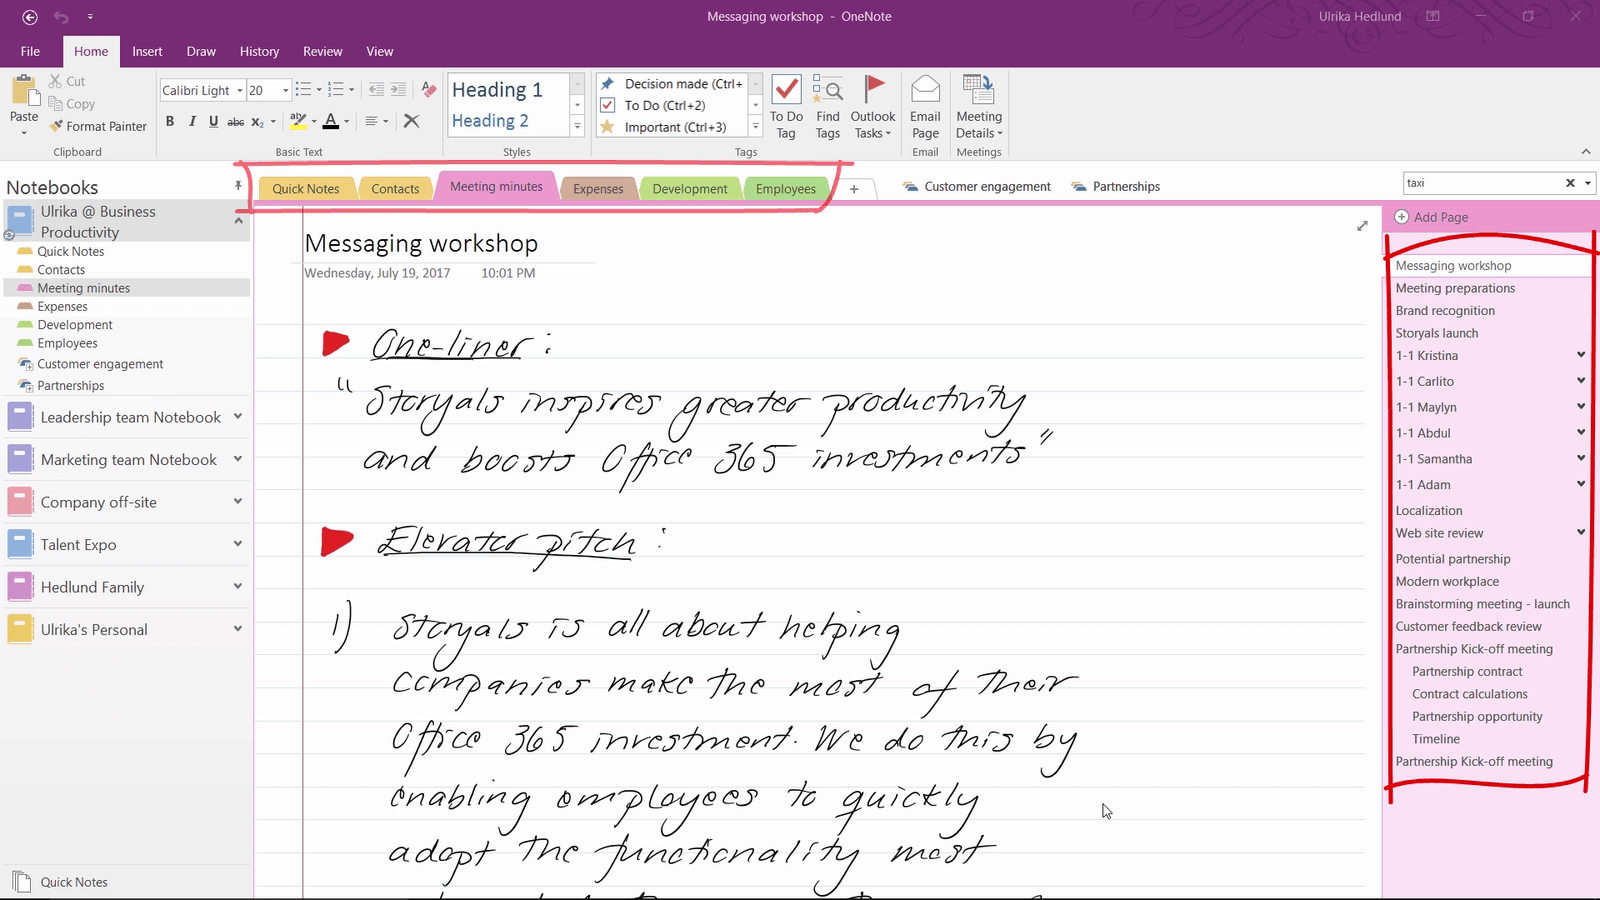 Messaging workshop - OneNote
Ulrika Hedlund
File Home Insert Draw History Review View
Paste
Cut
Copy
Format Painter
Clipboard
Calibri Light 20
B I U abc X₂ aby A
Basic Text
Heading 1
Heading 2
Styles
Decision made (Ctrl+
To Do (Ctrl+2)
Important (Ctrl+3)
To Do Tag
Find Tags
Outlook Tasks
Tags
Email Page
Email
Meeting Details
Meetings
Notebooks
Ulrika @ Business
Productivity
Quick Notes
Contacts
Meeting minutes
Expenses
Development
Employees
Customer engagement
Partnerships
Leadership team Notebook
Marketing team Notebook
Company off-site
Talent Expo
Hedlund Family
Ulrika's Personal
Quick Notes
Quick Notes Contacts Meeting minutes Expenses Development Employees + Customer engagement Partnerships
taxi
Messaging workshop
Wednesday, July 19, 2017 10:01 PM
One-liner :
"Storyals inspires greater productivity
and boosts Office 365 investments"
Elevator pitch :
1) Storyals is all about helping
companies make the most of their
Office 365 investment. We do this by
enabling employees to quickly
adopt the functionality most
Add Page
Messaging workshop
Meeting preparations
Brand recognition
Storyals launch
1-1 Kristina
1-1 Carlito
1-1 Maylyn
1-1 Abdul
1-1 Samantha
1-1 Adam
Localization
Web site review
Potential partnership
Modern workplace
Brainstorming meeting - launch
Customer feedback review
Partnership Kick-off meeting
Partnership contract
Contract calculations
Partnership opportunity
Timeline
Partnership Kick-off meeting